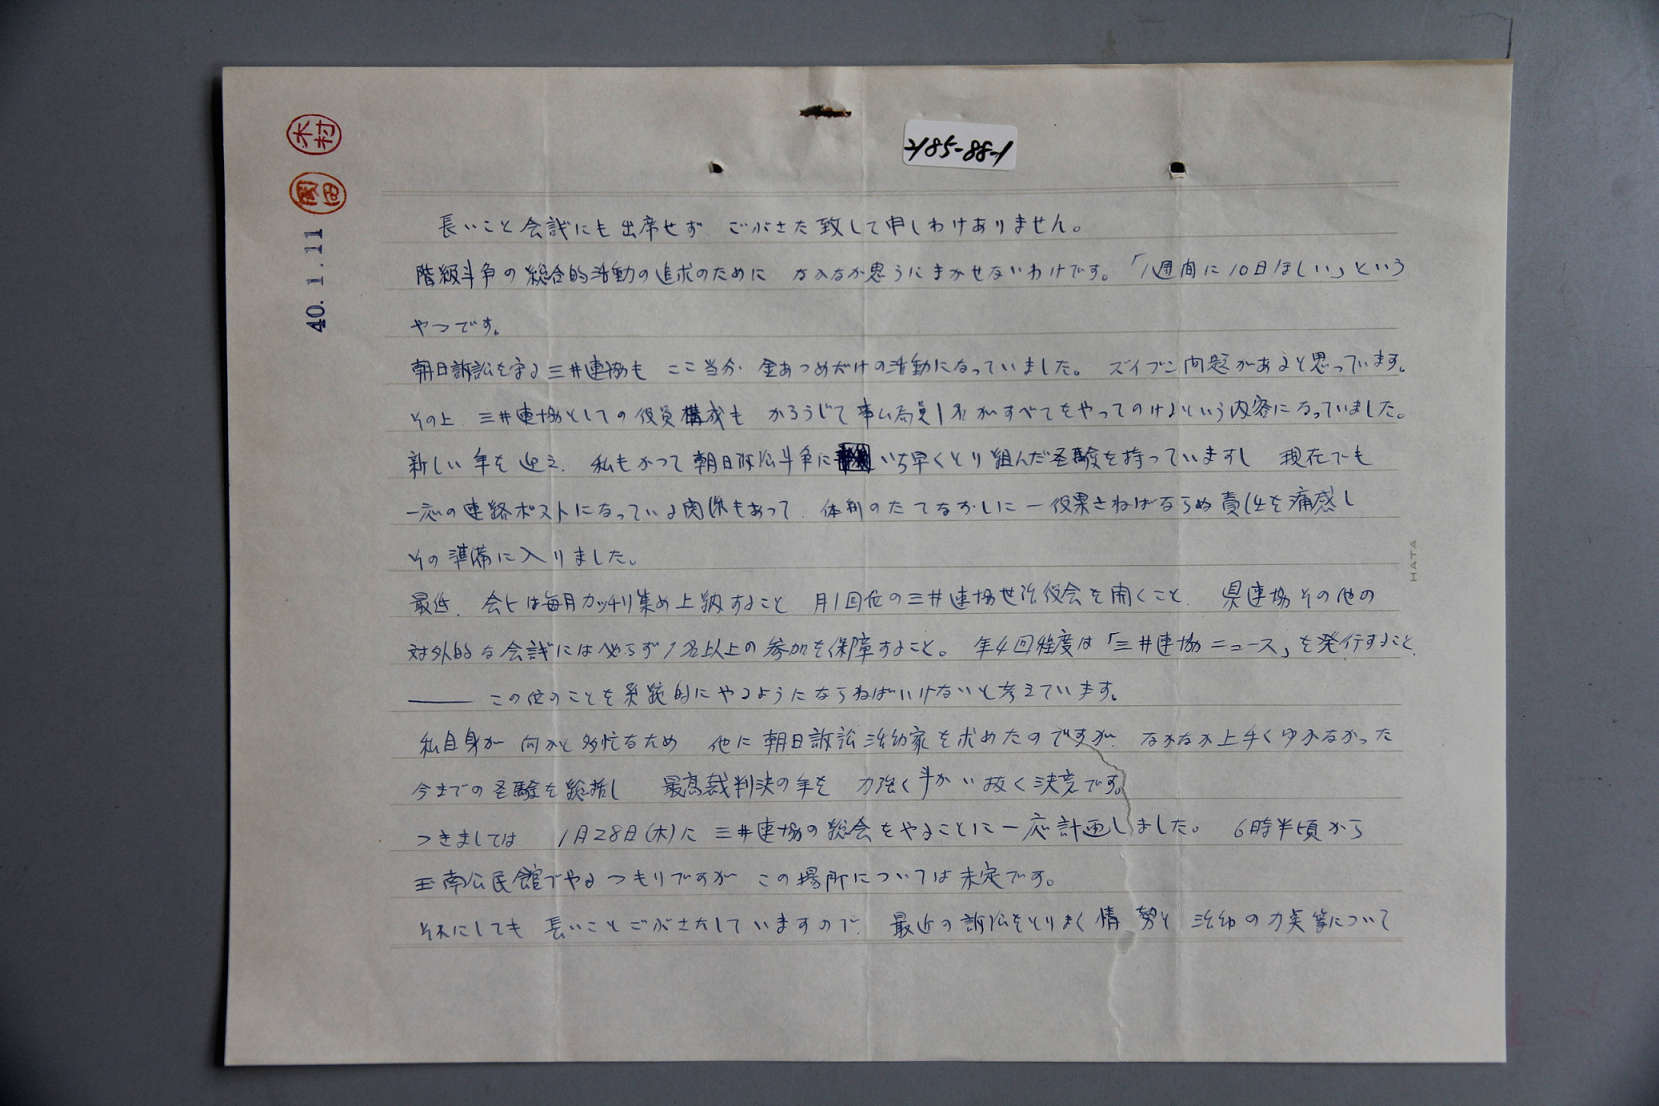 木村
岡田
40.1.11
2185-88-1
長いこと会議にも出席せず ごぶさた致して申しわけありません。
階級斗争の総合的活動の追求のために なかなか思うにまかせないわけです。「1週間に10日ほしい」という
やつです。
朝日訴訟を守る三井連協も ここ当分 金あつめだけの活動になっていました。 ズイブン問題があると思っています。
その上 三井連協としての役員構成も かろうじて事ム局員1名がすべてをやってのけるという内容になっていました。
新しい年を迎え、 私もかつて朝日訴訟斗争に いち早くとり組んだ圣験を持っていますし 現在でも
一応の連絡ポストになっている関係もあって、体制のたてなおしに一役果さねばならぬ責任を痛感し
その準備に入りました。
最近、会ヒは毎月カッチリ集め上納すること 月1回位の三井連協世話役会を開くこと、 県連協その他の
対外的な会議にはかならず1名以上の参加を保障すること。 年4回程度は「三井連協ニュース」を発行すること、
―― この位のことを系統的にやるようにならねばいけないと考えています。
私自身が何かと多忙なため 他に朝日訴訟活動家を求めたのですが、 なかなか上手くゆかなかった
今までの圣験を総括し 最高裁判決の年を 力強く斗かい抜く決意です。
つきましては 1月28日(木)に三井連協の総会をやることに一応計画しました。 6時半頃から
玉南公民館でやるつもりですが この場所については未定です。
それにしても 長いことごぶさたしていますので、 最近の訴訟をとりまく情勢と 活動の方策について
HATA